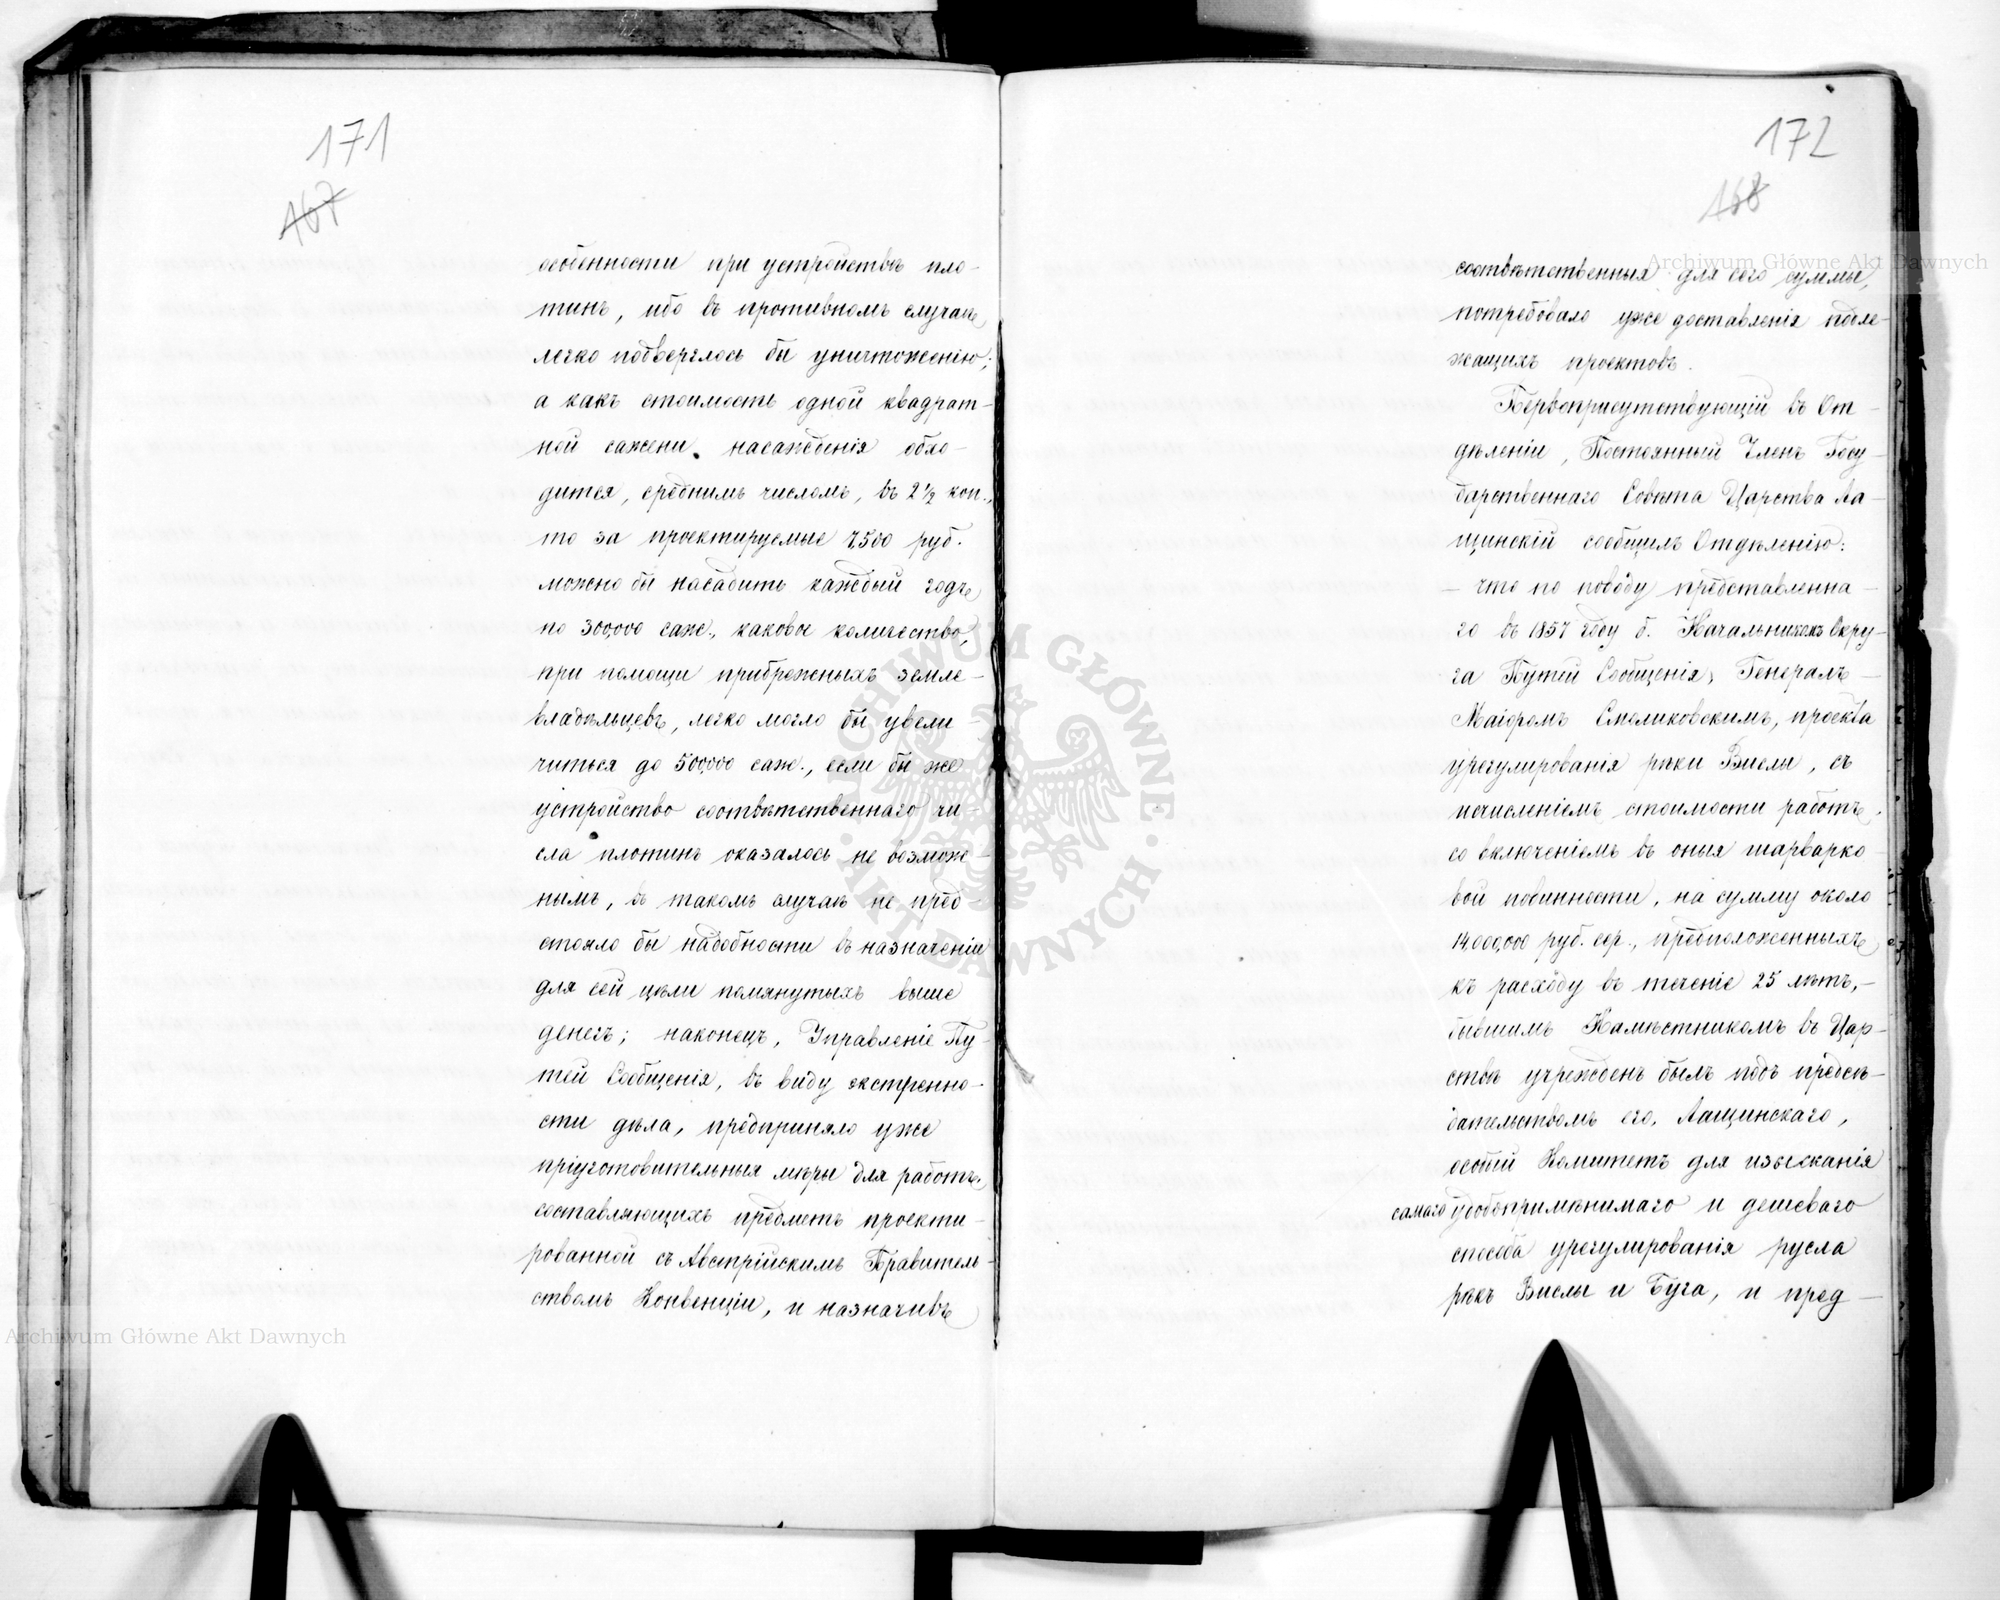 171
167
особенности при устройствѣ пло-
тинъ, ибо въ противномъ случаѣ
легко подверглось бы уничтоженію;
а какъ стоимость одной квадрат-
ной сажени насажденія обхо-
дится, среднимъ числомъ, въ 2 1/2 коп.,
то за проектируемые 7,500 руб.
можно бы насадить каждый годъ
по 300,000 саж., каковое количество,
при помощи прибрежныхъ земле-
владѣльцевъ, легко могло бы увели-
читься до 500,000 саж., если бы же
устройство соотвѣтственнаго чи-
сла плотинъ оказалось не возмож-
нымъ, въ такомъ случаѣ не пред-
стояло бы надобности въ назначеніи
для сей цѣли помянутыхъ выше
денегъ; наконецъ, Управленіе Пу-
тей Сообщенія, въ виду экстренно-
сти дѣла, предприняло уже
пріуготовительныя мѣры для работъ,
составляющихъ предметъ проекти-
рованной съ Австрійскимъ Правитель-
ствомъ Конвенціи, и назначивъ
172
168
соотвѣтственныя для сего суммы,
потребовало уже доставленія подле-
жащихъ проектовъ.
Первоприсутствующій въ От-
дѣленіи, Постоянный Членъ Госу-
дарственнаго Совѣта Царства Ла-
щинскій сообщилъ Отдѣленію:
— что по поводу представленна-
го въ 1857 году б. Начальникомъ Окру-
га Путей Сообщенія, Генералъ-
Маіоромъ Смеликовскимъ, проекта
урегулированія рѣки Вислы, съ
исчисленіемъ стоимости работъ,
со включеніемъ въ оныя шарварко-
вой повинности, на сумму около
14,000,000 руб. сер., предположенныхъ
къ расходу въ теченіе 25 лѣтъ,—
бывшимъ Намѣстникомъ въ Цар-
ствѣ учрежденъ былъ подъ предсѣ-
дательствомъ его, Лащинскаго,
особый Комитетъ для изысканія
самаго удобопримѣнимаго и дешеваго
способа урегулированія русла
рѣкъ Вислы и Буга, и пред-
Archiwum Główne Akt Dawnych
Archiwum Główne Akt Dawnych
ARCHIWUM GŁÓWNE · AKT DAWNYCH ·